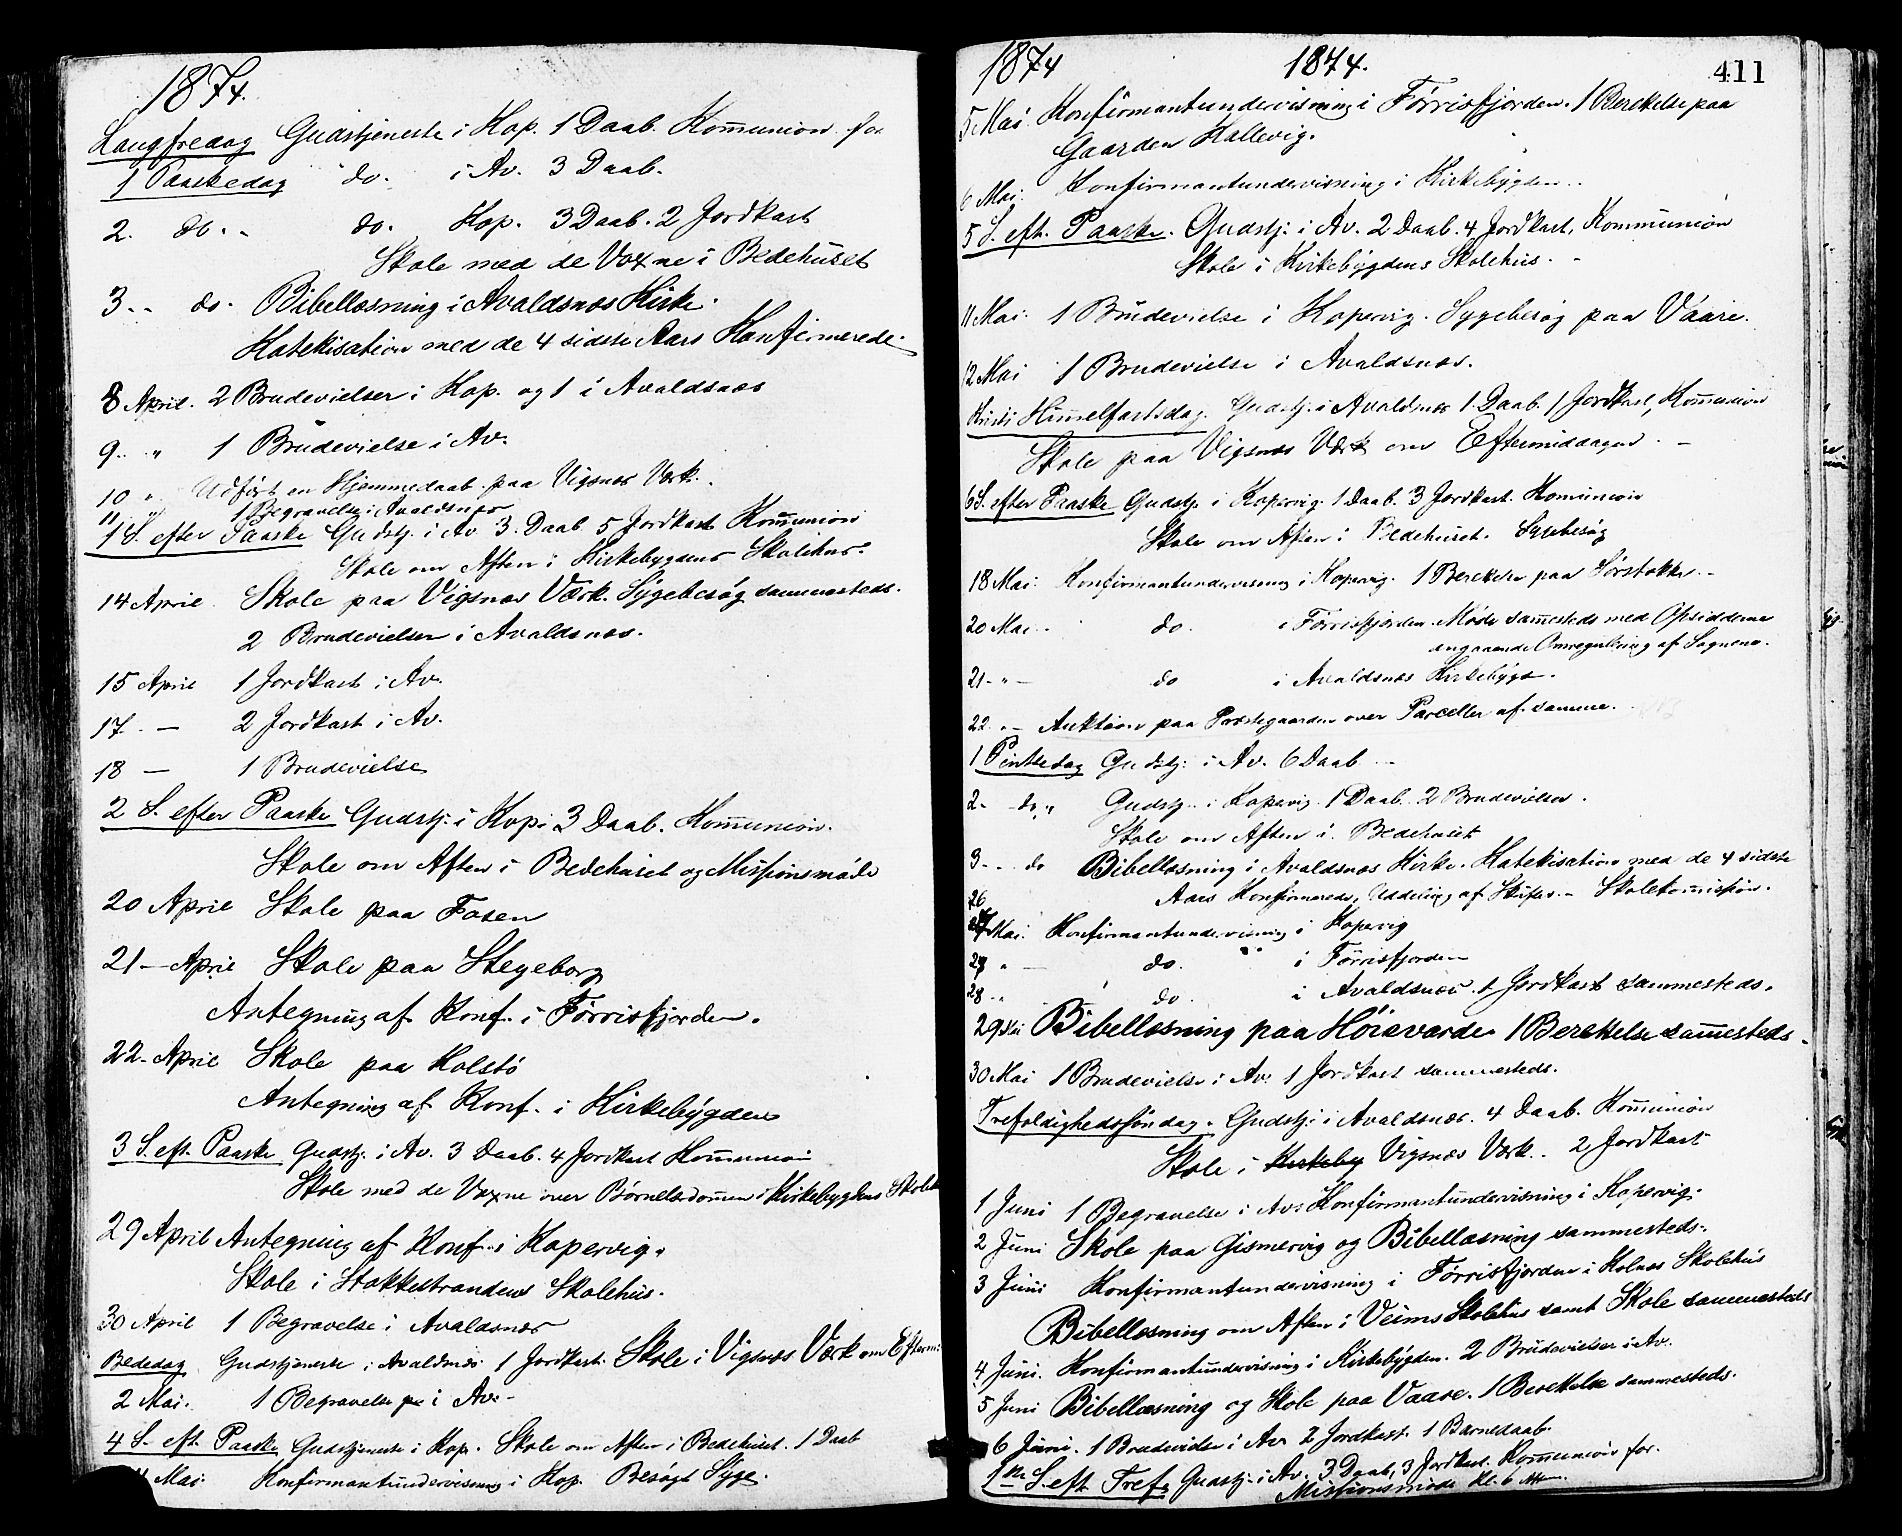 1874.
Langfredag Gudstjeneste i Kop. 1 Daab. Kommunion for
1 Paaskedag do. i Av. 3 Daab.
2. do. - do. Kop. 3 Daab. 2 Jordkast
Skole med de Voxne i Bedehuset
3 - - do. Bibellæsning i Avaldsnæs Kirke.
Katekisation med de 4 sidste Aars Konfirmerede.
8 April. 2 Brudevielser i Kop. og 1 i Avaldsnæs
9 - " 1 Brudevielse i Av.
10 " Udført en Hjemmedaab paa Vigsnæs Værk.
11 " 1 Begravelse i Avaldsnæs
1 S. efter Paaske Gudstj. i Av. 3 Daab 5 Jordkast Kommunion
Skole om Aften i Kirkebygdens Skolehus.
14 April Skole paa Vigsnæs Værk. Sygebesøg sammesteds.
2 Brudevielser i Avaldsnæs.
15 April 1 Jordkast i Av.
17. - 2 Jordkast i Av.
18 - 1 Brudevielse
2 S. efter Paaske Gudstj. i Kop. 3 Daab. Kommunion.
Skole om Aften i Bedehuset og Missionsmøde
20 April Skole paa Fosen
21 - April Skole paa Stegeborg
Antegning af Konf. i Førrisfjorden.
22 - April Skole paa Kolstø
Antegning af Konf. i Kirkebygden
3 S. eft. Paaske Gudstj. i Av. 3 Daab. 4 Jordkast Kommunion
Skole med de Voxne over Børnelærdommen i Kirkebygdens Skoleh
29 April Antegning af Konf. i Kopervig.
Skole i Stokkestrandens Skolehus.
30 April 1 Begravelse i Avaldsnæs
Bededag Gudstjeneste i Avaldsnæs 1 Jordkast. Skole i Vigsnæs Værk om Efterm
2 Mai. 1 Begravelse i Av. -
4 S. eft. Paaske Gudstjeneste i Kop. Skole om Aften i Bedehuset. 1 Daab
4 Mai Konfirmantundervisning i Kop. Besøgt Syge.
1874 1874. 411
5 Mai Konfirmantundervisning i Førrisfjorden. 1 Berettelse paa
Gaarden Kallevig.
6 Mai. Konfirmantundervisning i Kirkebygden.
5 S. eft. Paaske. Gudstj. i Av. 2 Daab. 4 Jordkast, Kommunion
Skole i Kirkebygdens Skolehus. -
11 Mai. 1 Brudevielse i Kopervig. Sygebesøg paa Vaare.
12 Mai 1 Brudevielse i Avaldsnæs.
Kristi Himmelfartsdag. Gudstj. i Avaldsnæs 1 Daab. 1 Jordkast, Kommunion
Skole paa Vigsnæs Værk om Eftermiddagen. -
6 S. efter Paaske Gudstj. i Kopervig. 1 Daab. 3 Jordkast. Kommunion
Skole om Aften i Bedehuset. Sygebesøg
18 Mai. Konfirmantundervisning i Kopervig. 1 Berettelse paa Sørstokke. -
20 Mai - do. i Førrisfjorden. Møde sammesteds med Opsidderne
angaaende Omregulering af Sognene.
21 - " - do i Avaldsnæs Kirkebygd.
22 - - Auktion paa Præstegaarden over Parceller af samme.
1 Pintsedag Gudstj. i Av. 6 Daab -
2 - do. " Gudstj. i Kopervig. 1 Daab. 2 Brudevielser.
Skole om Aften i Bedehuset
3 - - do Bibellæsning i Avaldsnæs Kirke. Katekisation med de 4 sidste
26 Aars Konfirmerede. Uddeling af Skrifter. - Skolekommission.
Mai. Konfirmantundervisning i Kopervig
27 " - do. " i Førrisfjorden
28 - " do. i Avaldsnæs. 1 Jordkast sammesteds.
29 Mai Bibellæsning paa Høievarde 1 Berettelse sammesteds.
30 Mai 1 Brudevielse i Av. 1 Jordkast sammesteds.
Trefoldighedssøndag. Gudstj. i Avaldsnæs. 4 Daab. Kommunion
Skole i Kirkeby Vigsnæs Værk. 2 Jordkast
1 Juni 1 Begravelse i Av. Konfirmantundervisning i Kopervig.
2 Juni Skole paa Gismervig og Bibellæsning sammesteds.
3 Juni Konfirmantundervisning i Førrisfjorden i Kolnæs Skolehus
Bibellæsning om Aften i Veims Skolehus samt Skole sammesteds
4 Juni. Konfirmantundervisning i Kirkebygden. 2 Brudevielser i Av.
5 Juni Bibellæsning og Skole paa Vaare. 1 Berettelse sammesteds.
6 Juni. 1 Brudevielse i Av 2 Jordkast. 1 Barnedaab.
1ste S. eft. Tref. Gudstj. i Av. 3 Daab, 3 Jordkast. Kommunion for.
Missionsmøde Kl. 6 Aften.